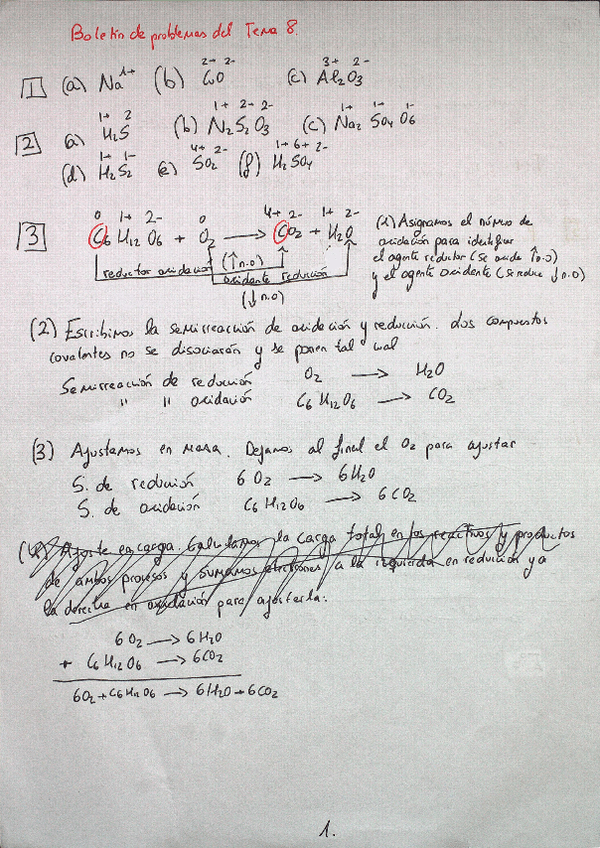 Boletín de problemas del Tema 8.
1+ 2+ 2- 3+ 2-
1 (a) Na (b) CuO (c) Al2O3
1+ 2 1+ 2- 2- 1+ 1- 1-
2 a) H2S (b) N2S2O3 (c) Na2 SO4 O6
1+ 1- 4+ 2- 1+ 6+ 2-
(d) H2S2 e) SO2 (f) H2SO4
0 1+ 2- 0 4+ 2- 1+ 2-
3 C6 H12 O6 + O2 → CO2 + H2O
reductor oxidación (↑ n.o)
oxidante reducción
(↓ n.o)
(1) Asignamos el número de
oxidación para identificar
el agente reductor (se oxida ↑n.o)
y el agente oxidante (se reduce ↓n.o)
(2) Escribimos la semirreacción de oxidación y reducción. Los compuestos
covalentes no se disociarán y se ponen tal cual
Semirreacción de reducción O2 → H2O
" " oxidación C6 H12O6 → CO2
(3) Ajustamos en masa. Dejamos al final el O2 para ajustar
S. de reducción 6 O2 → 6H2O
S. de oxidación C6H12O6 → 6 CO2
(4) Ajuste en carga. Calculamos la carga total en los reactivos y productos
de ambos procesos y sumamos electrones a la izquierda en reducción y a
la derecha en oxidación para ajustarla:
6 O2 → 6 H2O
+ C6H12O6 → 6CO2
6O2 + C6H12O6 → 6H2O + 6CO2
1.